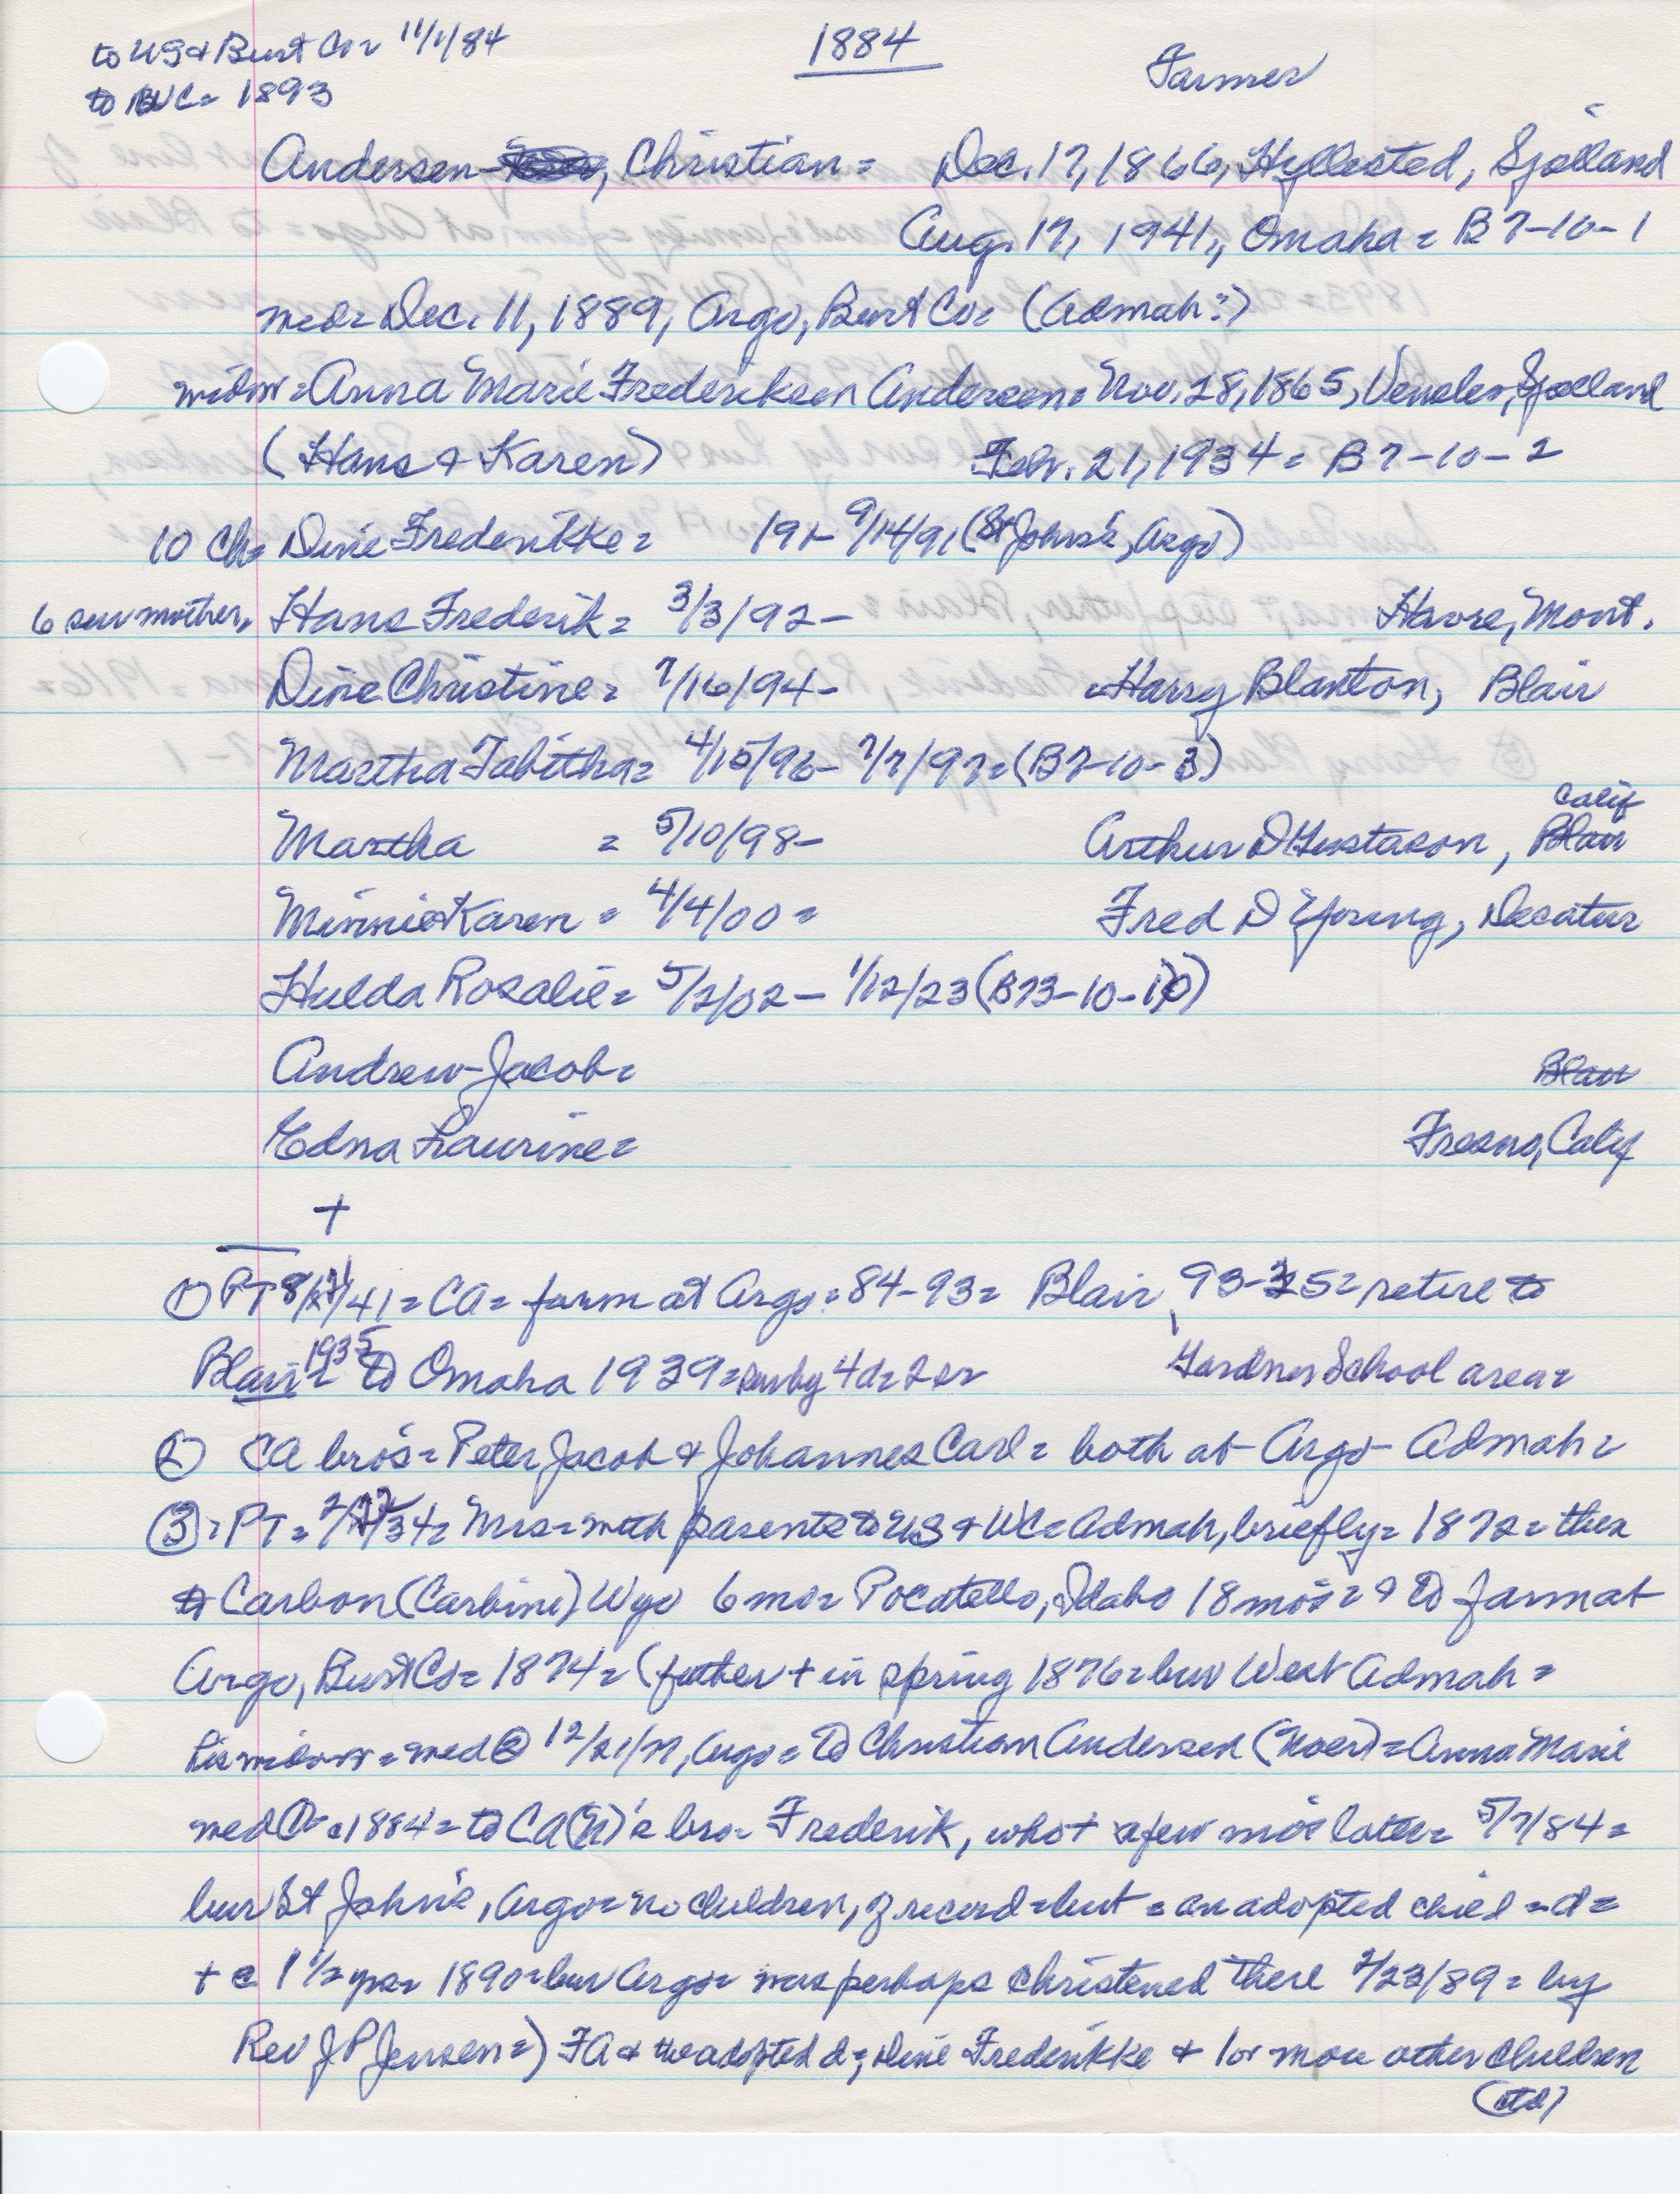 to US & Burt Co = 11/1/84
1884
Farmer
to BWC = 1893
Andersen-, Christian = Dec. 17, 1866, Hyllested, Sjælland
Aug. 17, 1941, Omaha = B7-10-1
med = Dec. 11, 1889, Argo, Burt Co = (Admah?)
widow = Anna Marie Frederiksen Andersen = Nov. 28, 1865, Sjælland
(Hans & Karen) Febr. 21, 1934 = B7-10-2
10 Ch = Dine Frederikke = 9/14/91 (St John's, Argo)
6 surv mother, Hans Frederik = 3/3/92 - Havre, Mont.
Dine Christine = 7/16/94 - Harry Blanton, Blair
Martha Tabitha = 4/15/96 - 7/7/97 = (B7-10-3)
Calif
Martha = 5/10/98 - Arthur D Gustason, Blair
Minnie Karen = 4/4/00 = Fred D Young, Decatur
Hulda Rosalie = 5/2/02 - 1/12/23 (B73-10-10)
Andrew Jacob = Blair
Edna Laurine = Fresno, Calif
+
① PT 8/21/41 = CA = farm at Argo = 84-93 = Blair, 93-35 = retire to
Blair 1935 = to Omaha 1939 = surv by 4 d = 2 s = Gardner School area =
② CA bro's = Peter Jacob & Johannes Carl = both at Argo - Admah =
③ = PT = 2/22/34 = Mrs = with parents to US & WC = Admah, briefly = 1872 = then
to Carbon (Carbine) Wyo 6 mo = Pocatello, Idaho 18 mo's = & to farm at
Argo, Burt Co = 1874 = (father + in spring 1876 = bur West Admah =
his widow = med ② 12/21/77, Argo = to Christian Andersen (Noer) = Anna Marie
med ① = c1884 = to CA(N)'s bro = Frederik, who + a few mo's later = 5/7/84 =
bur St John's, Argo = no children, of record = but = an adopted child = d =
+ c 1 1/2 yrs = 1890 = bur Argo = was perhaps christened there 2/23/89 = by
Rev J P Jensen =) FA & the adopted d =, Dine Frederikke & 1 or more other children
(ctd)